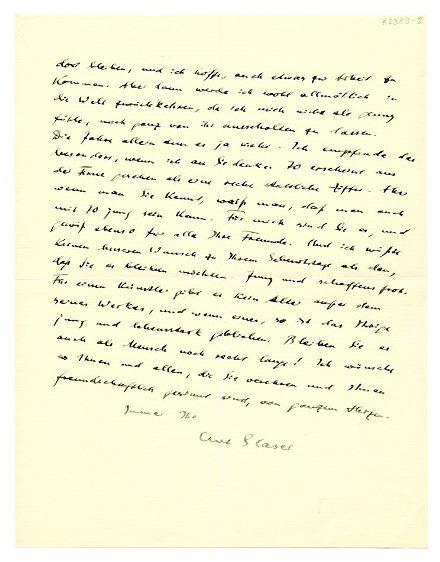 K2388-2
dort bleiben, und ich hoffe, auch etwas zur Arbeit zu
kommen. Aber dann werde ich wohl allmählich in
die Welt zurückkehren, da ich mich nicht alt genug
fühle, mich ganz von ihr ausschalten zu lassen.
Die Jahre allein tun es ja nicht. Ich empfinde das
besonders, wenn ich an Sie denke. 70 erscheint aus
der Ferne gesehen als eine recht stattliche Ziffer. Aber
wenn man Sie kennt, weiß man, daß man auch
mit 70 jung sein kann. Für mich sind Sie es, und
gewiß ebenso für alle Ihre Freunde. Und ich wüßte
keinen besseren Wunsch zu Ihrem Geburtstage als den,
daß Sie es bleiben möchten. Jung und schaffensfroh.
Für einen Künstler gibt es kein Alter außer dem
seines Werkes, und wenn eines, so ist das Ihrige
jung und lebensstark geblieben. Bleiben Sie es
auch als Mensch noch recht lange! Ich wünsche
es Ihnen und allen, die Sie verehren und Ihnen
freundschaftlich gesinnt sind, von ganzem Herzen.
Immer Ihr
Curt Glaser